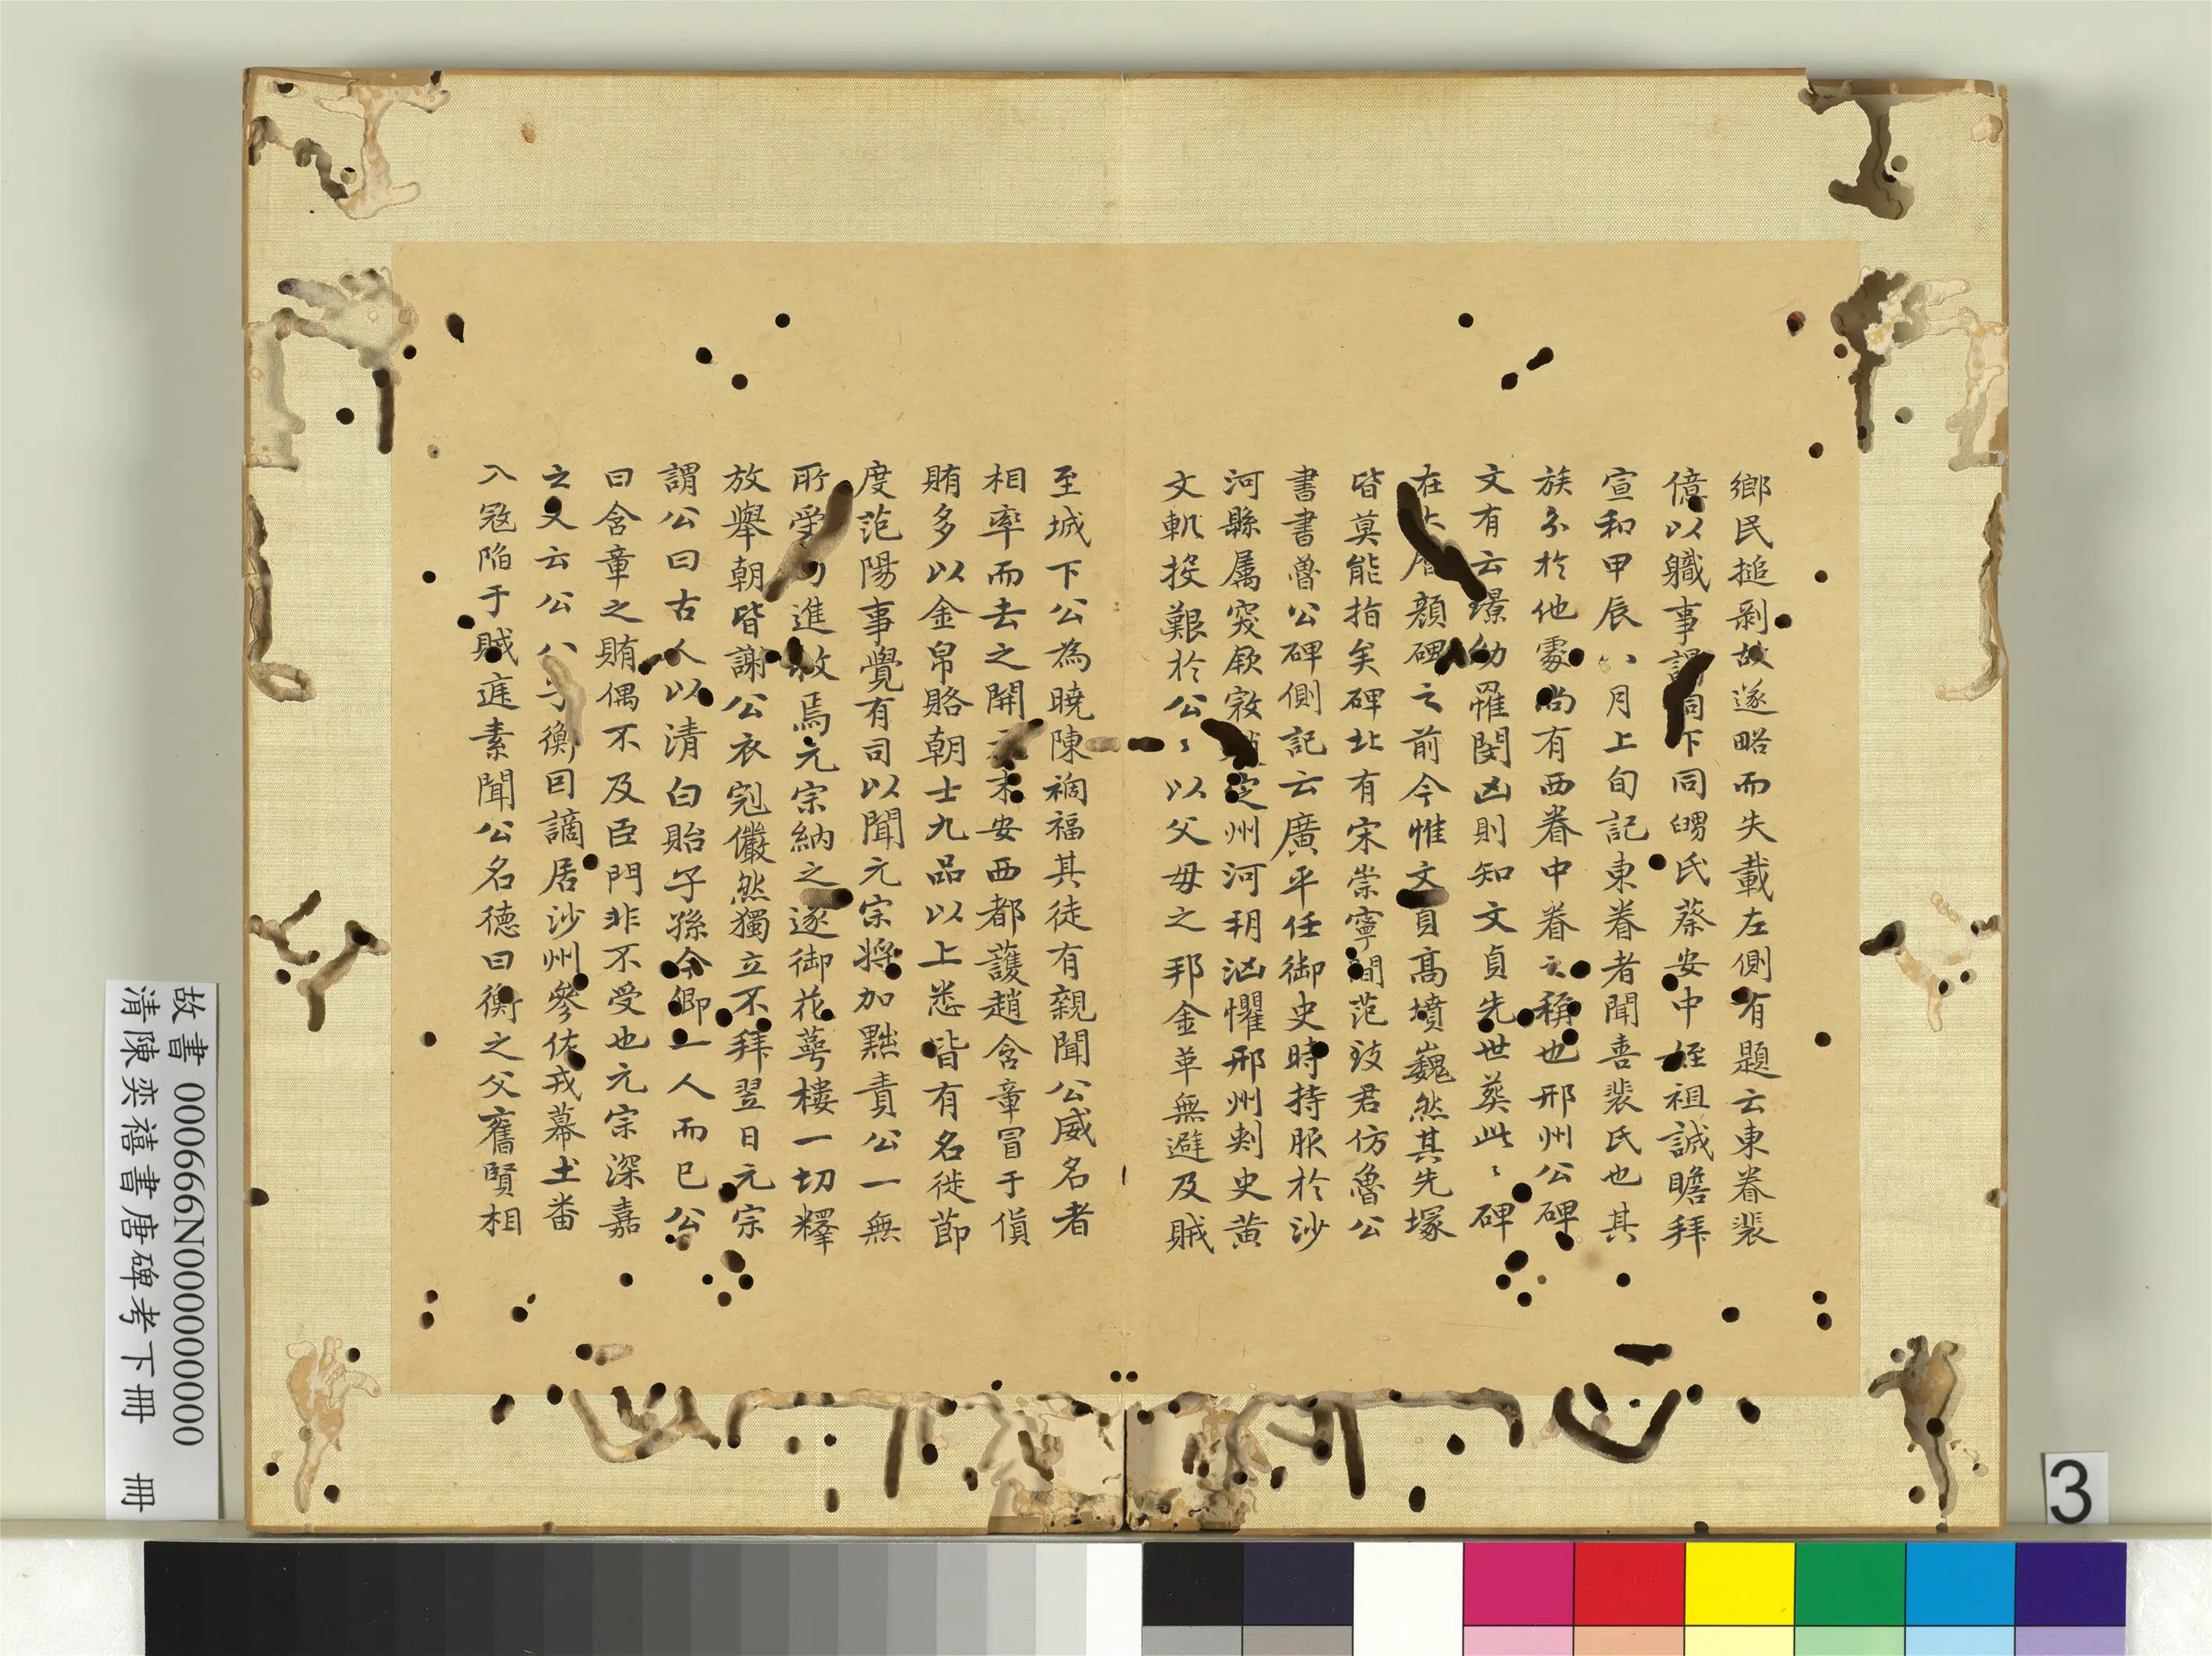 鄉民搥剝故遂略而失載左側有題云東眷裴
億以職事謁祠下同甥氏蔡安中姪祖誠瞻拜
宣和甲辰八月上旬記東眷者聞喜裴氏也其
族分於他處尚有西眷中眷之稱也邢州公碑
文有云璟幼罹閔凶則知文貞先世葬此〻碑
在 顏碑之前今惟文貞高墳巍然其先塚
皆莫能指矣碑北有宋崇寧間范致君仿魯公
書書魯公碑側記云廣平任御史時持服於沙
河縣屬突厥寇趙定州河朔汹懼邢州刾史黃
文軌投艱於公〻以父母之邦金革無避及賊
至城下公為曉陳禍福其徒有親聞公威名者
相率而去之開元末安西都護趙含章冒于貨
賄多以金帛賂朝士九品以上悉皆有名徙節
度范陽事覺有司以聞元宗將加黜責公一無
所受 進救焉元宗納之遂御花萼樓一切釋
放舉朝皆謝公衣冠儼然獨立不拜翌日元宗
謂公曰古人以清白貽子孫今卿一人而已公
曰含章之賄偶不及臣門非不受也元宗深嘉
之又云公八子衡因謫居沙州參佐戎幕土番
入寇陷于賊庭素聞公名德曰衡之父舊賢相
故書 000666N000000000
清陳奕禧書唐碑考下冊 冊
3